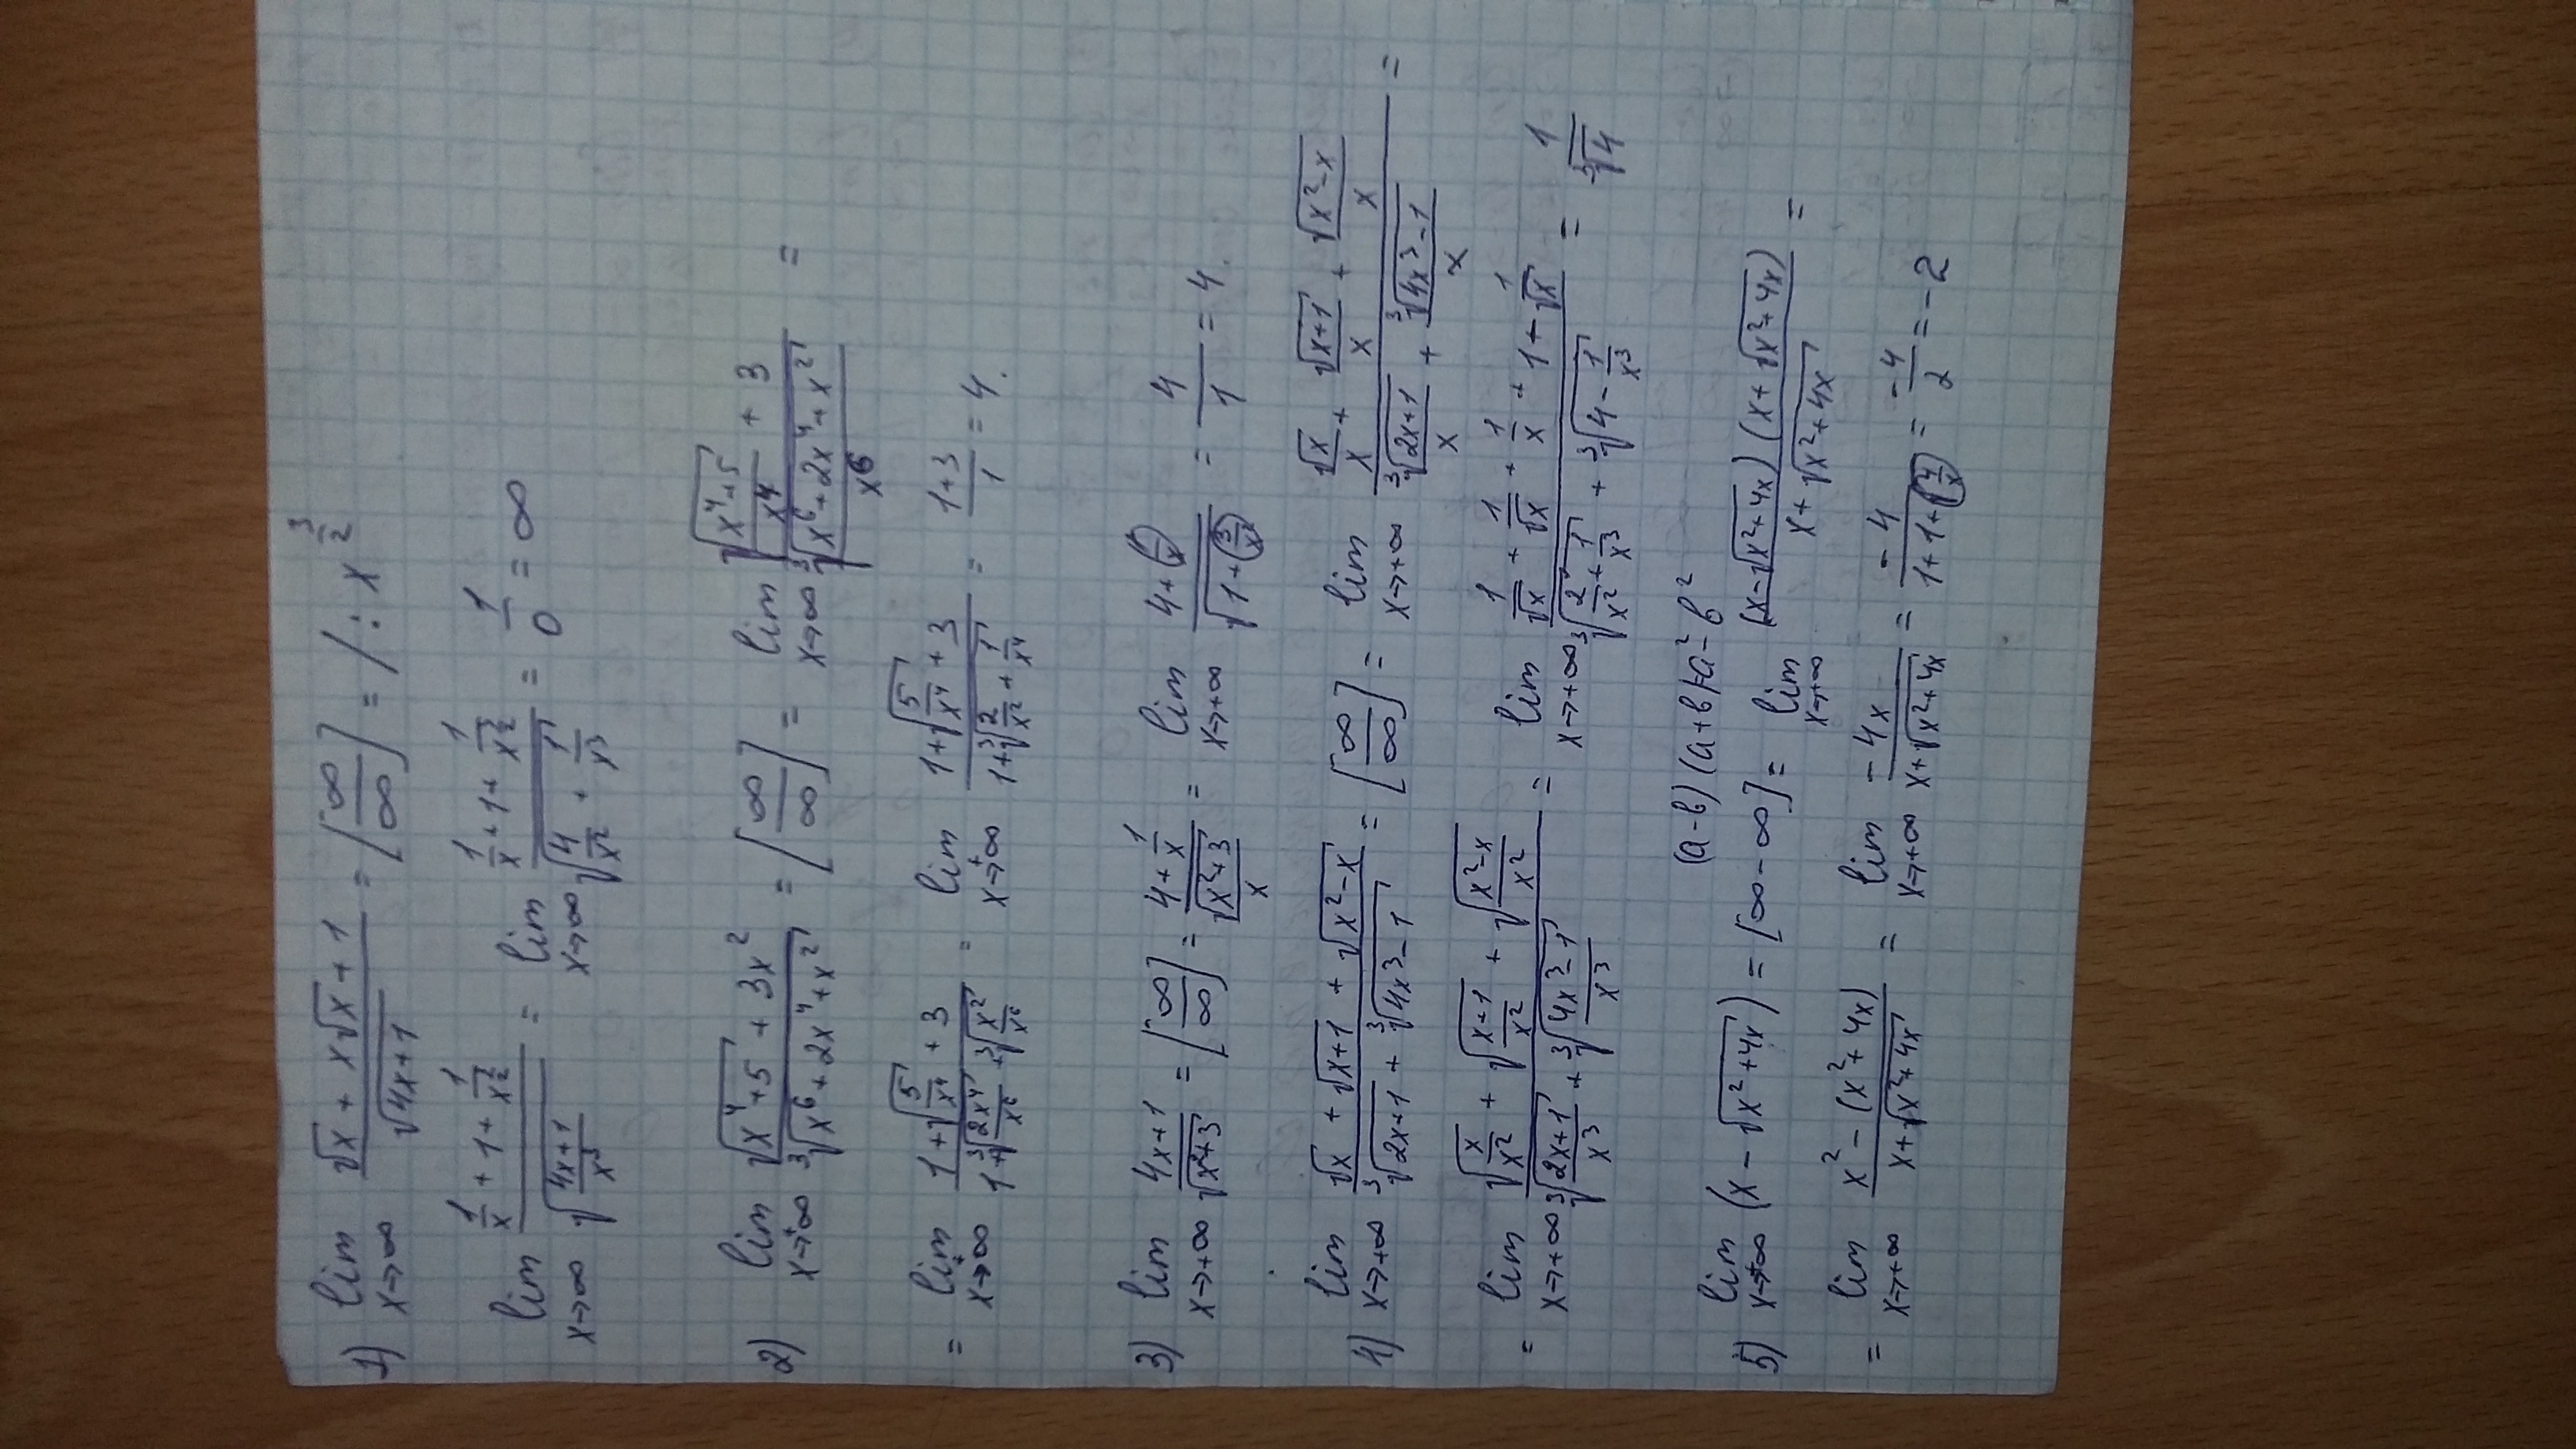 1) lim x→∞ (√x + x√x + 1)/√(4x+1) = [∞/∞] = / : x^(3/2)
lim x→∞ (1/x + 1 + 1/x^(3/2))/√((4x+1)/x³) = lim x→∞ (1/x + 1 + 1/x^(3/2))/√(4/x² + 1/x³) = 1/0 = ∞
2) lim x→+∞ (√(x⁴+5) + 3x²)/∛(x⁶+2x⁴+x²) = [∞/∞] = lim x→∞ (√((x⁴+5)/x⁴) + 3)/∛((x⁶+2x⁴+x²)/x⁶) =
= lim x→+∞ (1+√(5/x⁴) + 3)/(1+∛(2x⁴/x⁶) + ∛(x²/x⁶)) = lim x→+∞ (1+√(5/x⁴) + 3)/(1+∛(2/x² + 1/x⁴)) = (1+3)/1 = 4.
3) lim x→+∞ (4x+1)/√(x²+3) = [∞/∞] = (4+1/x)/(√(x²+3)/x) = lim x→+∞ (4+(1/x))/√(1+(3/x²)) = 4/1 = 4.
4) lim x→+∞ (√x + √(x+1) + √(x²-x))/(∛(2x+1) + ∛(4x³-1)) = [∞/∞] = lim x→+∞ (√x/x + √(x+1)/x + √(x²-x)/x)/(∛(2x+1)/x + ∛(4x³-1)/x) =
= lim x→+∞ (√(x/x²) + √((x+1)/x²) + √((x²-x)/x²))/(∛((2x+1)/x³) + ∛((4x³-1)/x³)) = lim x→+∞ (1/√x + 1/√x + 1/x + 1+1/√x)/(∛(2/x²+1/x³) + ∛(4-1/x³)) = 1/∛4
(a-b)(a+b)=a²-b²
5) lim x→+∞ (x - √(x²+4x)) = [∞-∞] = lim x→+∞ (x-√(x²+4x))(x+√(x²+4x))/(x+√(x²+4x)) =
= lim x→+∞ (x² - (x²+4x))/(x+√(x²+4x)) = lim x→+∞ -4x/(x+√(x²+4x)) = -4/(1+1+√(4/x)) = -4/2 = -2